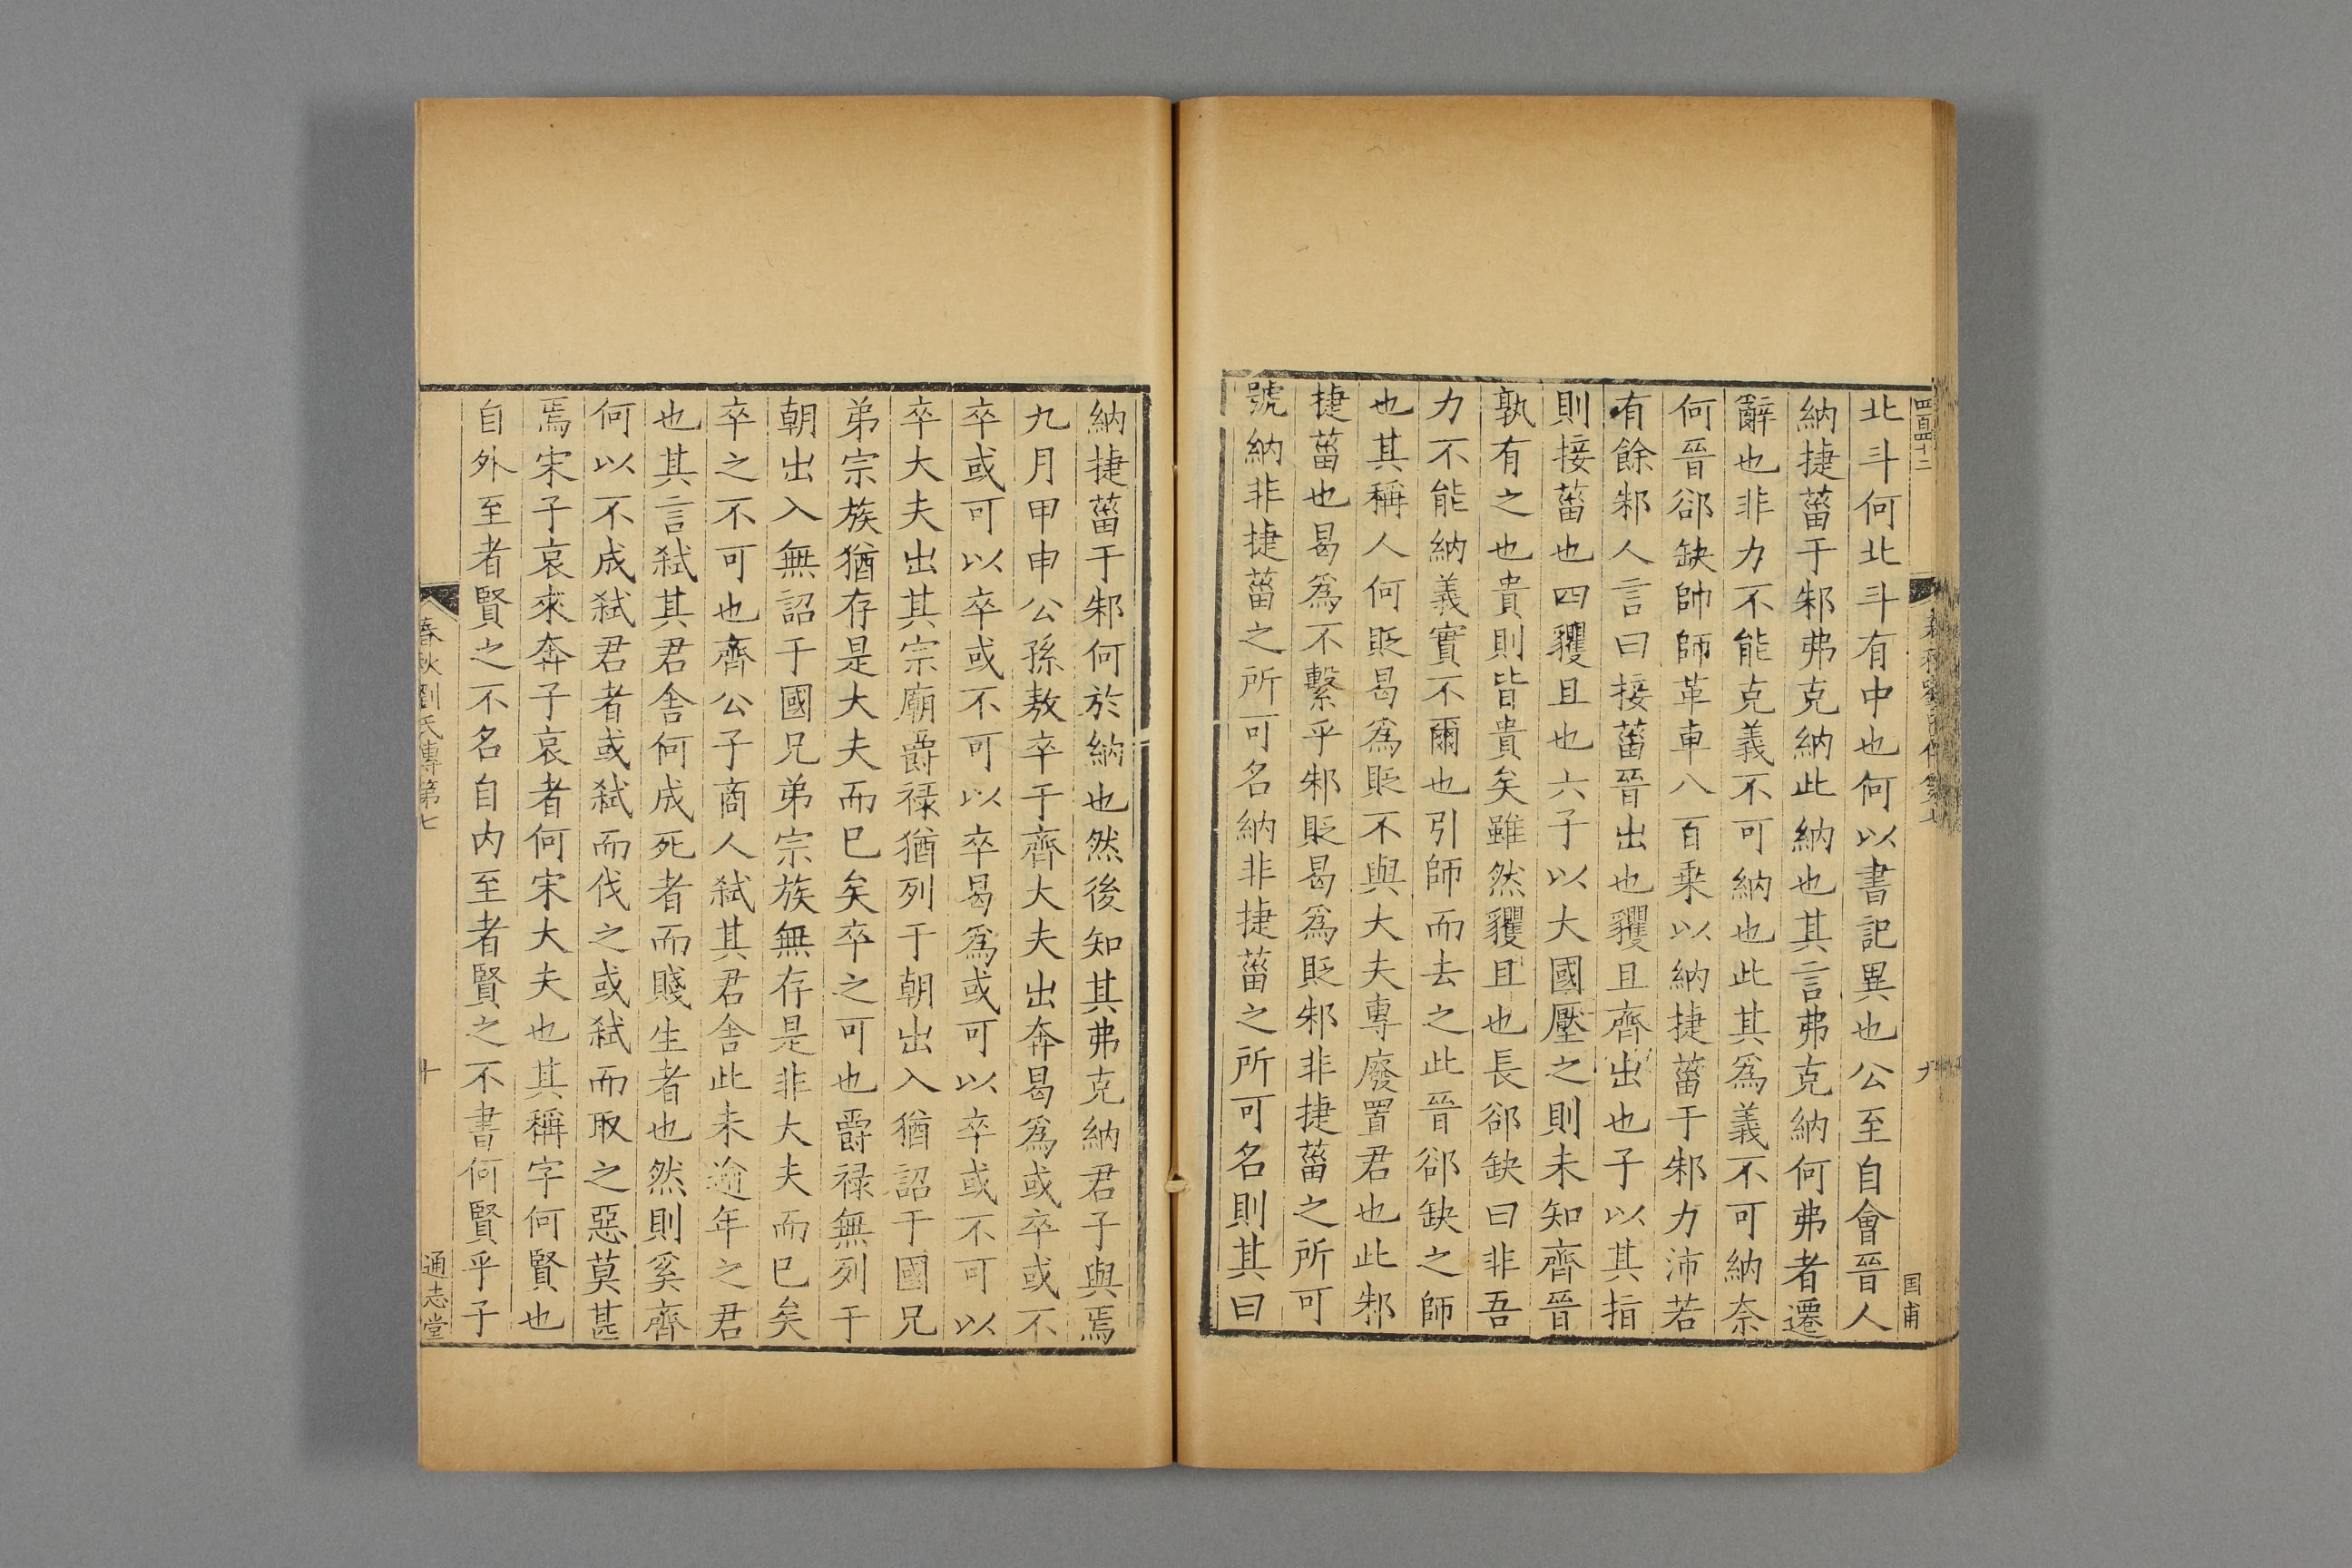 四百四十二
九
国甫
北斗何北斗有中也何以書記異也公至自會晉人
納捷菑于邾弗克納此納也其言弗克納何弗者遷
辭也非力不能克義不可納也此其爲義不可納奈
何晉郤缺帥師革車八百乗以納捷菑于邾力沛若
有餘邾人言曰接菑晉出也貜且齊出也子以其指
則接菑也四貜且也六子以大國壓之則未知齊晉
孰有之也貴則皆貴矣雖然貜且也長郤缺曰非吾
力不能納義實不爾也引師而去之此晉郤缺之師
也其稱人何貶曷爲貶不與大夫專廢置君也此邾
捷菑也曷爲不繫乎邾貶曷爲貶邾非捷菑之所可
號納非捷菑之所可名納非捷菑之所可名則其曰
納捷菑于邾何於納也然後知其弗克納君子與焉
九月甲申公孫敖卒于齊大夫出奔曷爲或卒或不
卒或可以卒或不可以卒曷爲或可以卒或不可以
卒大夫出其宗廟爵禄猶列于朝出入猶詔于國兄
弟宗族猶存是大夫而巳矣卒之可也爵禄無列于
朝出入無詔于國兄弟宗族無存是非大夫而巳矣
卒之不可也齊公子商人弑其君舎此未逾年之君
也其言弑其君舎何成死者而賤生者也然則奚齊
何以不成弑君者或弑而伐之或弑而取之惡莫甚
焉宋子哀來奔子哀者何宋大夫也其稱字何賢也
自外至者賢之不名自内至者賢之不書何賢乎子
春秋劉氏傳第七
十
通志堂